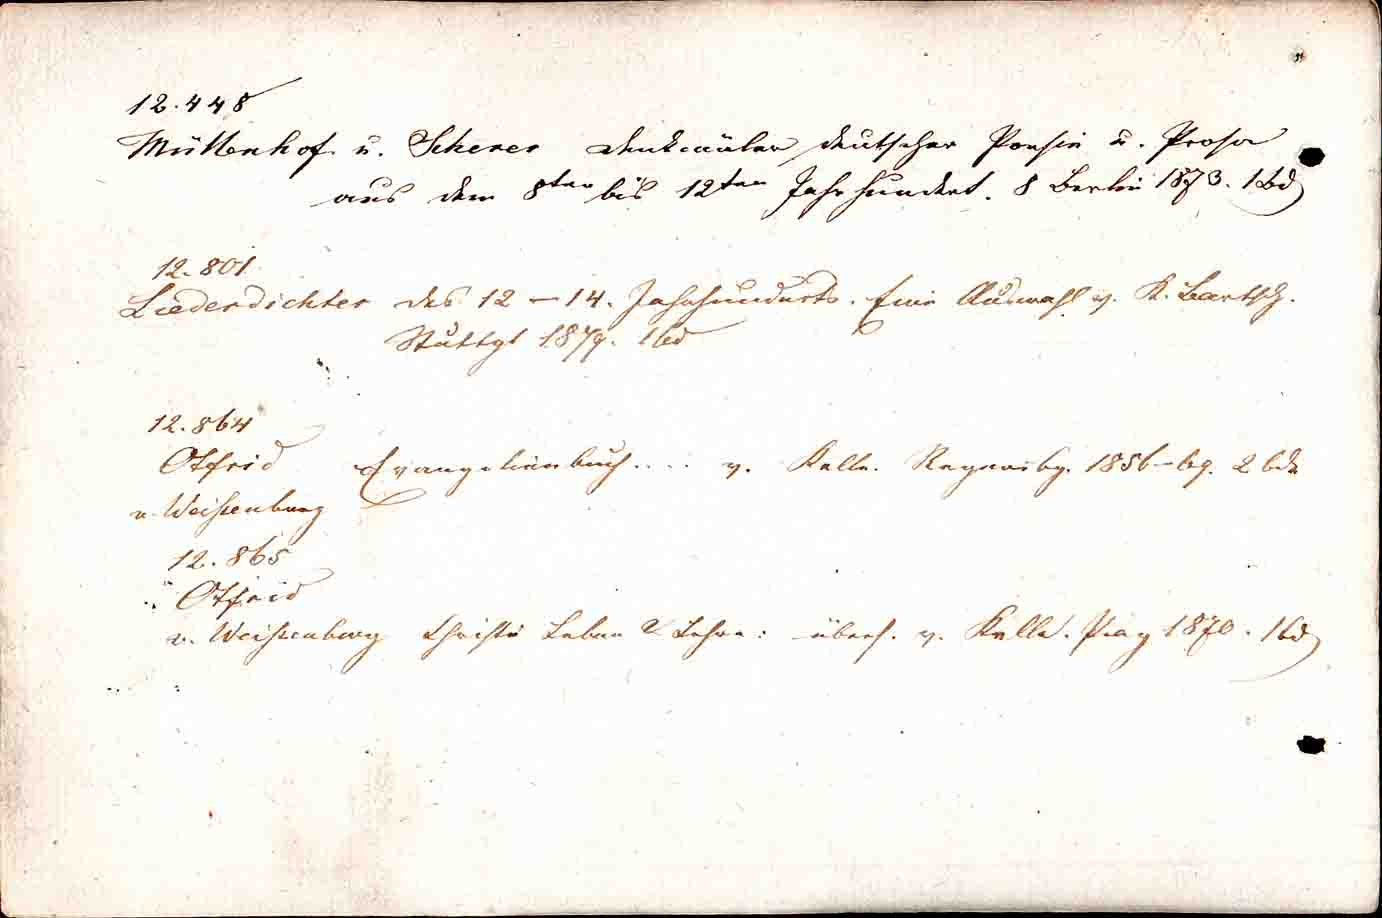 12.448
Müllenhof u. Scherer Denkmäler deutscher Poesie u. Prosa
aus dem 8ten bis 12ten Jahrhundert. 8 Berlin 1873. 1 Bd
12.801
Liederdichter des 12–14. Jahrhunderts. Eine Auswahl v. K. Bartsch.
Stuttgt 1879. 1 bd
12.864
Otfrid Evangelienbuch.... v. Kelle. Regensbg. 1856–69. 2 bde
v. Weißenburg
12.865
Otfrid
v. Weißenburg Christi Leben & Lehre: übers. v. Kelle. Prag 1870. 1 bd